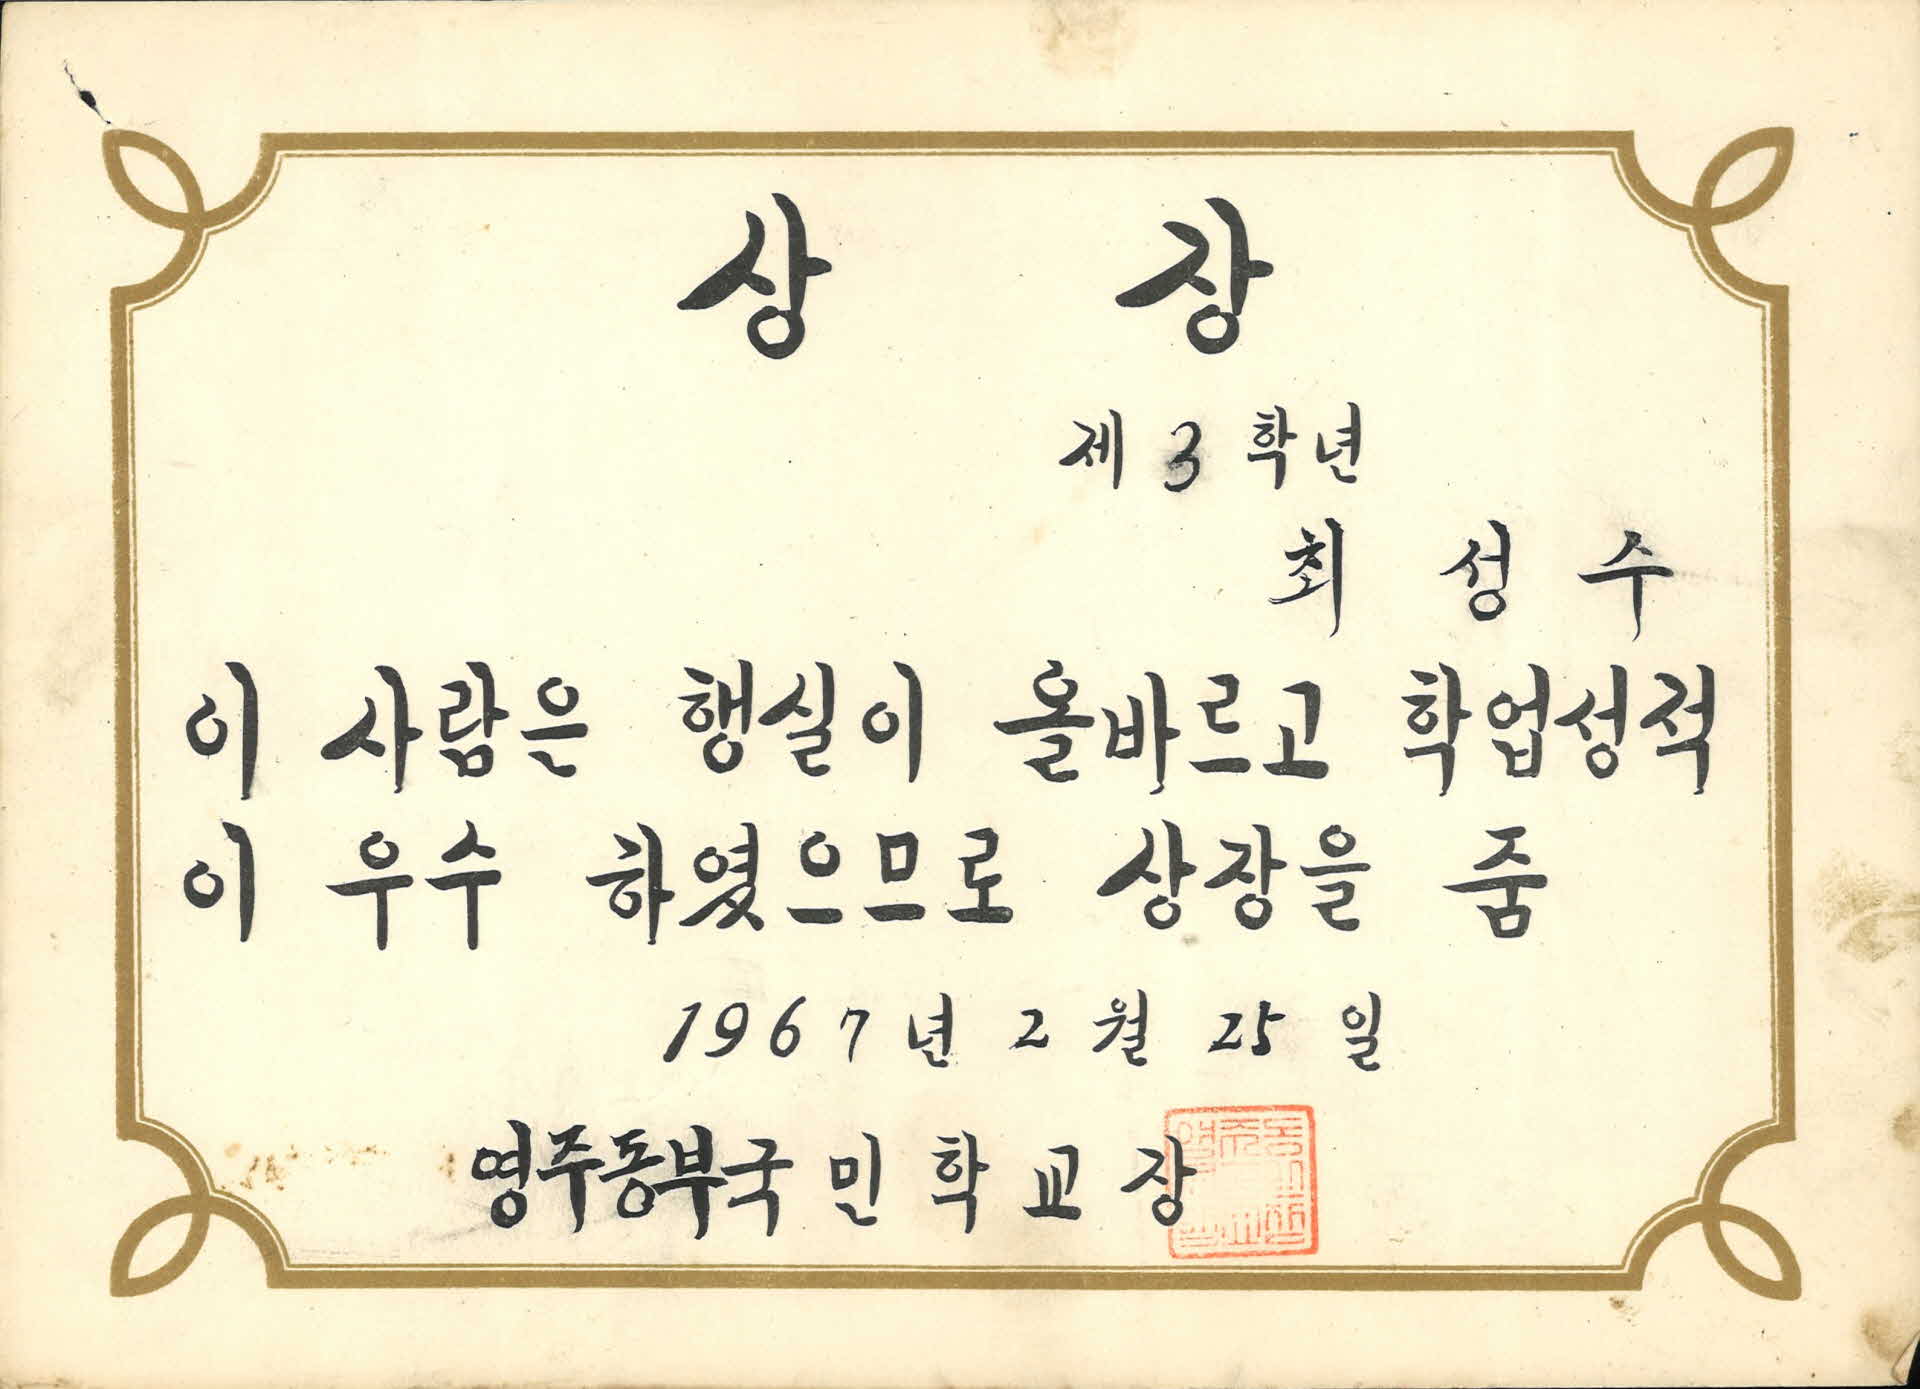 상 장
제 3 학년
최 성 수
이 사람은 행실이 올바르고 학업성적
이 우수 하였으므로 상장을 줌
1967년 2월 25일
영주동부국민학교장